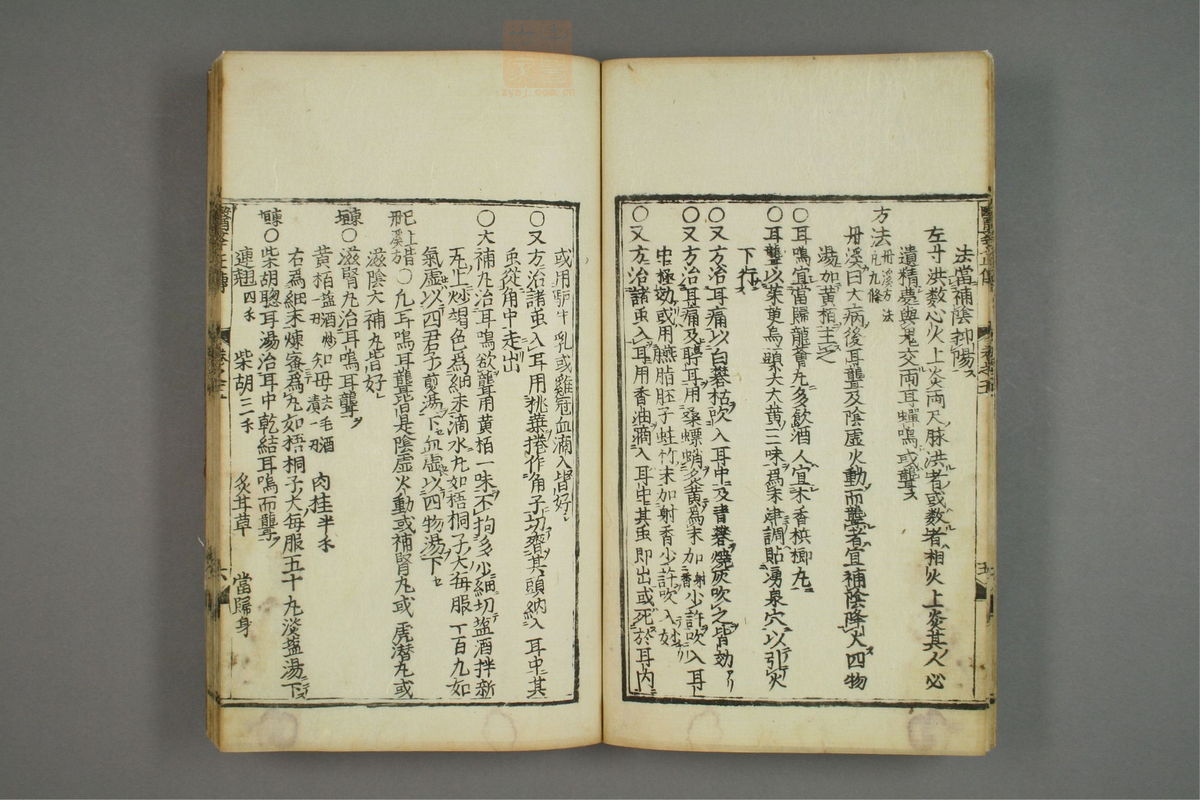 法當補陰抑陽
左寸洪數心火上炎兩尺脉洪者或數者相火上炎其人必
遺精夢與鬼交兩耳蟬鳴或聾
方法 丹溪方法 凡九條
丹溪曰大病後耳聾及陰虛火動而聾者宜補陰降火四物
湯加黃栢主之
〇耳鳴宜當歸龍薈丸多飲酒人宜木香梹榔丸
〇耳聾以茱萸烏頭大大黃三味爲末津調貼湧泉穴以引火
下行
〇又方治耳痛以白礬枯吹入耳中及青礬燒灰吹之皆効
〇又方治耳痛及聤耳用桑螵蛸炙黃爲末加射香少許吹入耳
中極効或用臙脂胚子蛀竹末加射香少許吹入妙
〇又方治諸䖝入耳用香油滴入耳中其䖝即出或死於耳内
或用驴牛乳或雞冠血滴入皆好
〇又方治諸䖝入耳用桃葉捲作角子切齊其頭納入耳中其
䖝從角中走出
〇大補丸治耳鳴欲聾用黃栢一味不拘多少細切盐酒拌新
瓦上炒褐色爲細末滴水丸如梧桐子大每服一百丸如
氣虛以四君子煎湯下血虛以四物湯下
已上皆丹溪方〇凡耳鳴耳聾皆是陰虛火動或補腎丸或虎潛丸或
滋陰大補丸皆好
〇滋腎丸治耳鳴耳聾
黃栢盐酒炒一兩 知母去毛酒漬一兩 肉桂半錢
右爲細末煉蜜爲丸如梧桐子大每服五十丸淡盐湯下
〇柴胡聰耳湯治耳中乾結耳鳴而聾
連翹四錢 柴胡三錢 炙甘草 當歸身